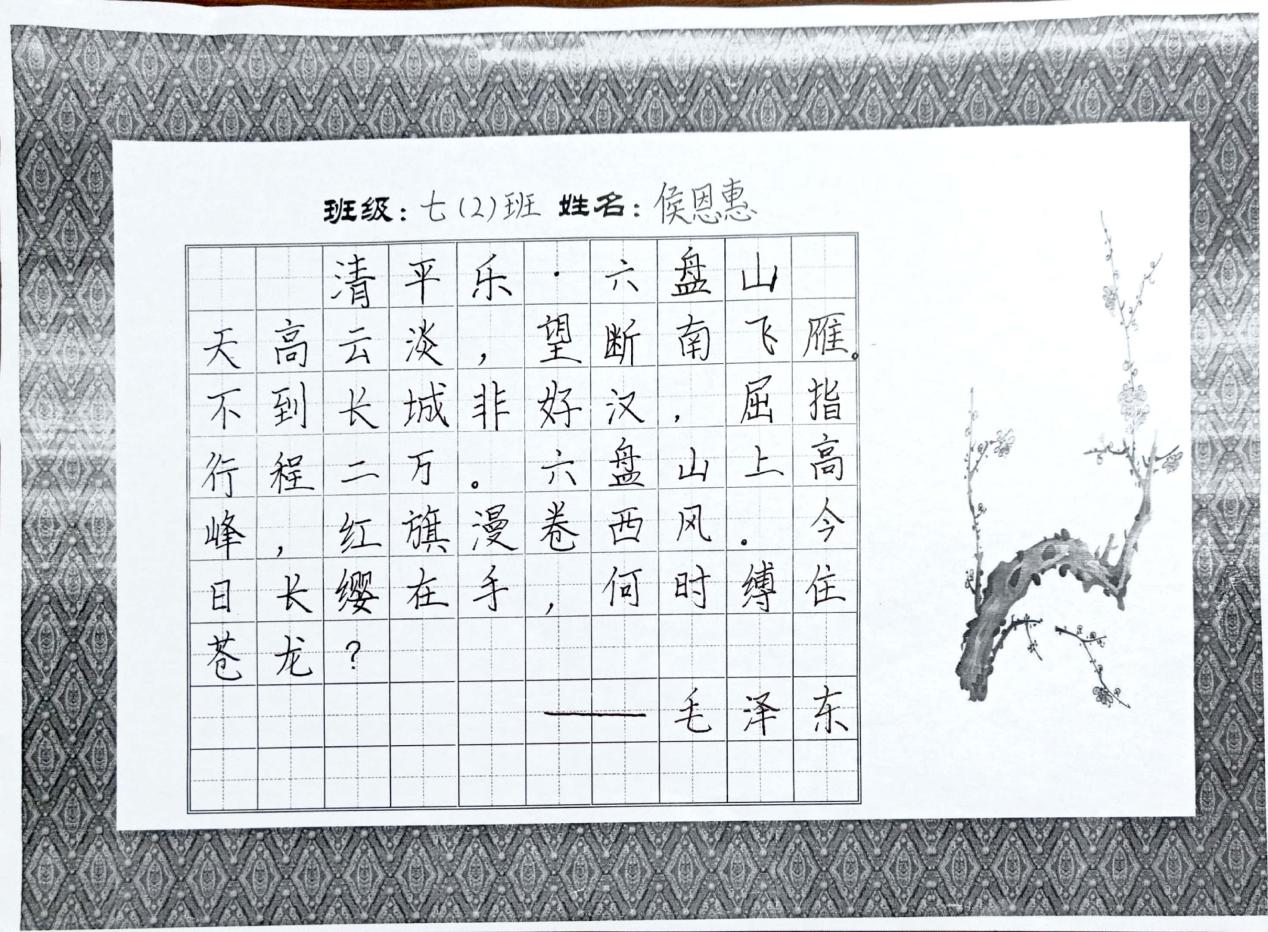 班级：七(2)班 姓名：侯恩惠
清平乐·六盘山
天高云淡，望断南飞雁。
不到长城非好汉，屈指
行程二万。六盘山上高
峰，红旗漫卷西风。今
日长缨在手，何时缚住
苍龙？
——毛泽东